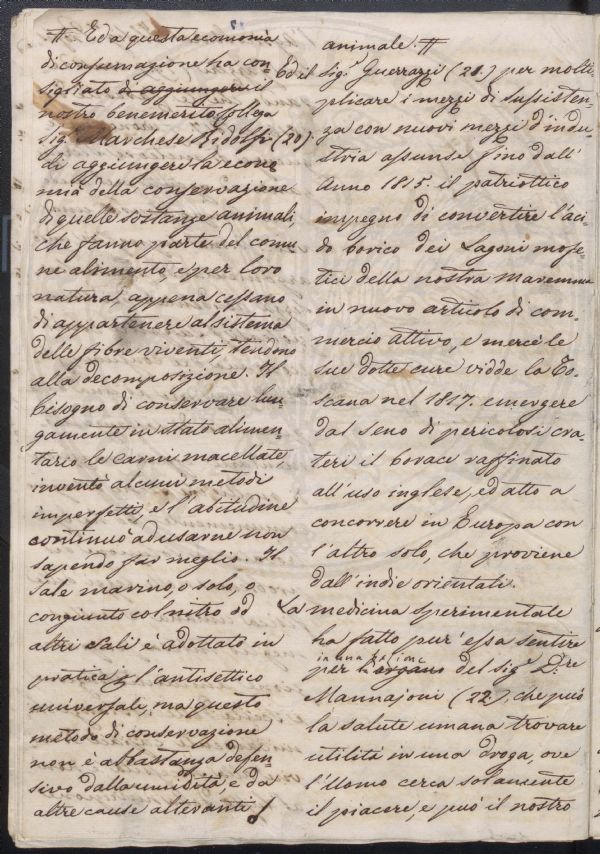 # Ed a questa economia
di consumazione ha con-
sigliato di aggiungere il
nostro benemerito Collega
Sig.r Marchese Ridolfi (20)
di aggiungere la econo
mia della conservazione
di quelle sostanze animali,
che fanno parte del comu
ne alimento, e per loro
natura, appena cessano
di appartenere al sistema
delle fibre viventi, tendono
alla decomposizione. Il
bisogno di conservare lun-
gamente in stato alimen-
tario le carni macellate
inventò alcuni metodi
imperfetti, e l'abitudine
continuò ad usarne non
sapendo far meglio. Il
sale marino, o solo, o
congiunto col nitro od
altri sali è adottato in
pratica l'antisettico
universale, ma questo
metodo di conservazione
non è abbastanza defen-
sivo dalla umidità, e da
altre cause alteranti
animale. #
Ed il Sig.r Guerrazzi (21.) per molti-
plicare i mezzi di sussisten-
za con nuovi mezzi d'indu-
stria assunse fino dall'
Anno 1815. il patriottico
impegno di convertire l'aci-
do borico dei Lagoni mofe-
tici della nostra Maremma
in nuovo articolo di com-
mercio attivo, e mercè le
sue dotte cure vidde la To-
scana nel 1817. emergere
dal seno di pericolosi cra-
teri il borace raffinato
all'uso inglese, ed atto a
concorrere in Europa con
l'altro solo, che proviene
dall'indie orientali.
La medicina sperimentale
ha fatto pur'essa sentire
in una
per organo del sig.r D.re
Mannajoni (22), che può
la salute umana trovare
utilità in una droga, ove
l'Uomo cerca solamente
il piacere, e può il nostro